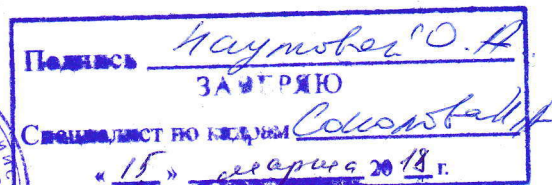 Подпись Наумовой О.А
ЗАВЕРЯЮ
Специалист по кадрам Соколова Н А
« 15 » марта 20 18 г.